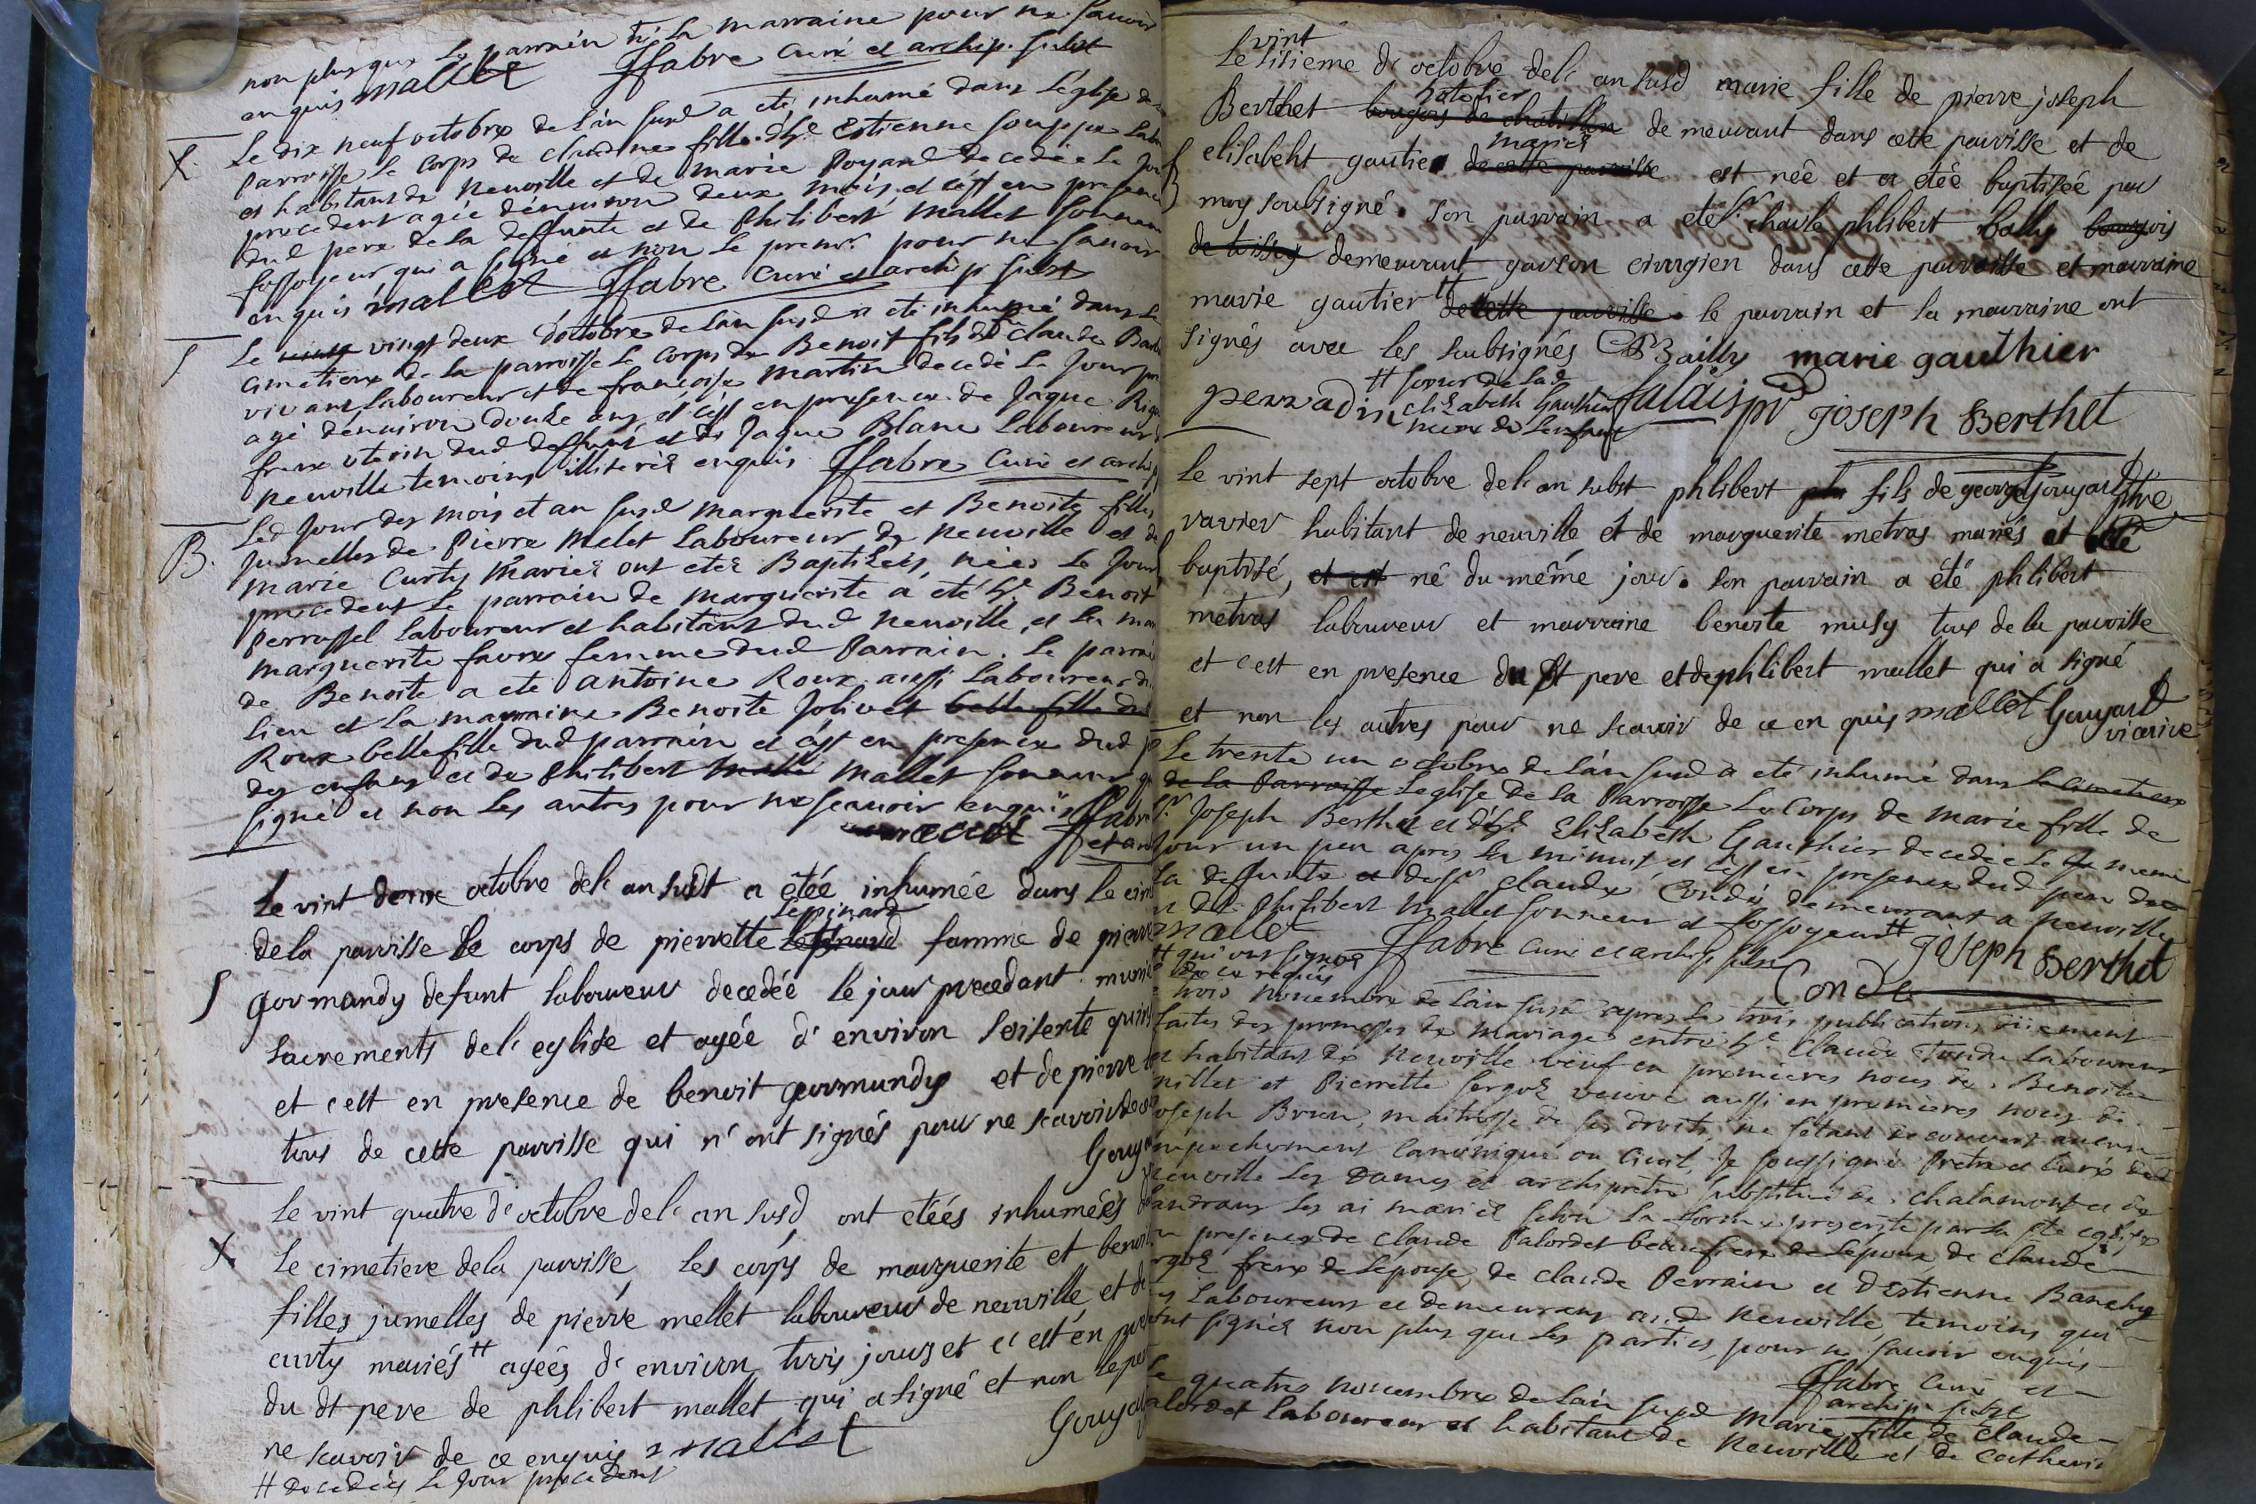 non plus que le parrain ni la marraine pour ne scavoir
enquis mallet ffabre curé et archip. subst
X. Le dix neuf octobre de l'an susd a eté inhumé dans l'église de
parroisse le corps de claudine fille d'hte Estienne souppe labou
et habitant de Neuville et de Marie Poyard decedée le jour
precedent agée d'environ deux mois et c'est en presence
dud pere de la deffunte et de Philibert Mallet sonneur
fossoyeur qui a signé et non le premier pour ne scavoir
enquis mallet ffabre curé et archip subst
Le vingt deux d'octobre de l'an susd a eté inhumé dans le
cimetiere de la parroisse le corps de Benoit fils d claude
vivant laboureur et de françoise martin decedé le jour
agé d'environ douze ans et c'est en presence de Jaque
frere uterin dud deffunt et de Jaque Blanc laboureurs
neuville temoins illiterés enquis. ffabre curé et archip
B. Led jour des mois et an susd marguerite et Benoite filles
Jumelles de Pierre Melet laboureur de Neuville et de
Marie Curty Mariés ont etés Baptisées, nées le jour
precedent le parrain de Marguerite a eté hte Benoit
perrussel laboureur et habitant dud neuville, et la mar
marguerite favre femme dud Parrain. Le parrain
de Benoite a eté antoine Roux aussi laboureur du
lieu et la marraine Benoite Jolivet belle fille dud
Roux belle fille dud parrain et c'est en presence dud
des enfans et de Philibert Mallet sonneur qui
signé et non les autres pour ne scavoir enquis ffabre
mallet et ar
Le vint deux octobre de l'an susdt a étée inhumée dans le cim
lespinard
de la parisse le corps de pierrette femme de pierre
gormandy defunt laboureur decedée le jour precedant munie
sacrements de l'eglise et agée d'environ soisente quin
et c'est en presence de benoit gormandy et de pierre
tous de cette parrisse qui n'ont signés pour ne scavoir de ce
Gouy
X Le vint quatre d'octobre de l'an susd, ont etéés inhumées
le cimetiere de la parrisse, les corps de marguerite et benoi
filles jumelles de pierre mellet laboureur de neuville et de
curty mariés # agées d'environ trois jours et c'est en pre
du dt pere de phlibert mallet qui a signé et non le pere
ne scavoir de ce enquis mallet Gouya
# decedées le jour precedent
vint
Le sisieme d'octobre de l'an susd marie fille de pierre joseph
hotelier
Berthet bourgois de chatillon demeurant dans cette parrisse et de
mariés
elisabeht gautier de cette parrisse est née et a etée baptisée par
moy soubsigné. son parrain a eté sr charle phlibert bally bourgois
de toissey demeurant garson cirugien dans cette parroisse et marraine
marie gautier # de cette parrisse. le parrain et la marraine ont
signés avec les subsignés Bailly marie gauthier
# soeur de lad
elizabeth Gauthier
mere de l'enfant
perradin falais pr joseph Berthet
Le vint sept octobre de l'an subst phlibert fils de george Gouyard
ravier habitant de neuville et de marguerite metras mariés et eté
baptisé, et est né du même jour. son parrain a été phlibert
metras laboureur et marraine benoite musy tous de la parrisse
et c'est en presence du dt pere et de phlibert mallet qui a signé
et non les autres pour ne scavoir de ce en quis mallet Gouyard
vicaire
Le trente un octobre de l'an susd a eté inhumé dans le cimetiere
de la Parroisse l'eglise de la Parroisse le corps de Marie fille de
sr. Joseph Berthet et d'hte Elizabeth Gauthier decedée le meme
jour un peu apres la minuit, et c'est en presence dud pere de
la deffunte et de sr claude Condé demeurant a Neuville
et de Philibert Mallet sonneur et fossoyeur #
mallet ffabre curé et archip subst joseph Berthet
# qui ont signés
de ce requis Condé
trois novembre de l'an susd apres les trois publications düement
faites des promesses de mariage entre hte claude laboureur
et habitant de Neuville veüf en premieres noces de Benoite
millet et Pierrette veuve aussi en premieres noces de
joseph Brun, maitresse de ses droits, ne s'etant decouvert aucun
empechement canonique ou civil, Je soussigné Pretre et Curé de
neuville les dames et archipretre substitut de chalamont et de
les ai mariés selon la forme prescrite par la ste eglise
en presence de claude Palordet beaufrere de l'epoux, de claude
frere de l'epouse, de claude Perrain et d'Estienne Banchy
Laboureurs et demeurans aud Neuville, temoins qui
ont signés non plus que les parties, pour ne scavoir enquis
ffabre curé et
archip. subst
Le quatre novembre de l'an susd Marie fille de claude
alordet laboureur et habitant de Neuville et de catheri